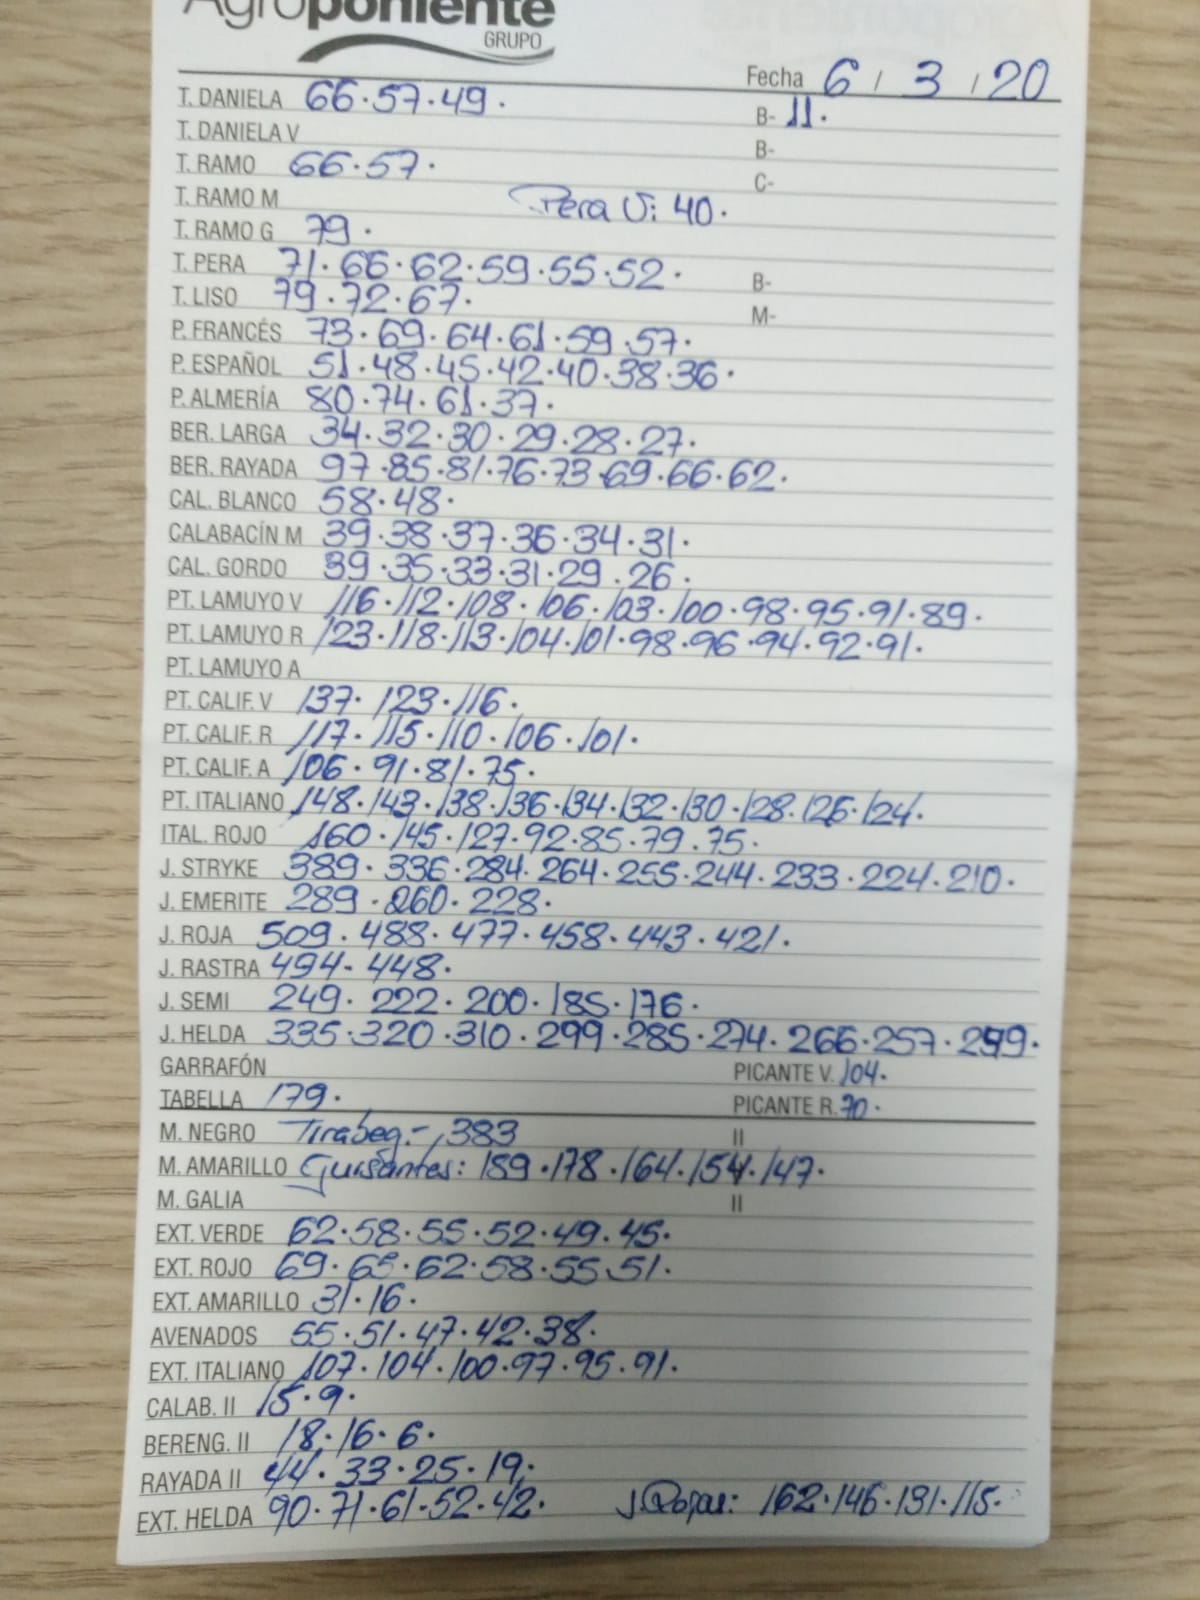 Agroponiente
GRUPO
Fecha 6 / 3 / 20
T. DANIELA 66·57·49· B- 11·
T. DANIELA V B-
T. RAMO 66·57· C-
T. RAMO M Pera V: 40·
T. RAMO G 79·
T. PERA 71·66·62·59·55·52· B-
T. LISO 79·72·67· M-
P. FRANCÉS 73·69·64·61·59·57·
P. ESPAÑOL 51·48·45·42·40·38·36·
P. ALMERÍA 80·74·61·37·
BER. LARGA 34·32·30·29·28·27·
BER. RAYADA 97·85·81·76·73·69·66·62·
CAL. BLANCO 58·48·
CALABACÍN M 39·38·37·36·34·31·
CAL. GORDO 39·35·33·31·29·26·
PT. LAMUYO V 116·112·108·106·103·100·98·95·91·89·
PT. LAMUYO R 123·118·113·104·101·98·96·94·92·91·
PT. LAMUYO A
PT. CALIF. V 137·123·116·
PT. CALIF. R 117·115·110·106·101·
PT. CALIF. A 106·91·81·75·
PT. ITALIANO 148·143·138·136·134·132·130·128·126·124·
ITAL. ROJO 160·145·127·92·85·79·75·
J. STRYKE 389·336·284·264·255·244·233·224·210·
J. EMERITE 289·260·228·
J. ROJA 509·488·477·458·443·421·
J. RASTRA 494-448·
J. SEMI 249·222·200·185·176·
J. HELDA 335·320·310·299·285·274·266·257·
GARRAFÓN PICANTE V. 104·
TABELLA 179· PICANTE R. 70·
M. NEGRO Tirabeq.- 383 II
M. AMARILLO Guisantes: 189·178·164·154·147·
M. GALIA II
EXT. VERDE 62·58·55·52·49·45·
EXT. ROJO 69·65·62·58·55·51·
EXT. AMARILLO 31·16·
AVENADOS 55·51·47·42·38·
EXT. ITALIANO 107·104·100·97·95·91·
CALAB. II 15·9·
BERENG. II 18·16·6·
RAYADA II 44·33·25·19·
EXT. HELDA 90·71·61·52·42· J. Rojas: 162·146·131·115·